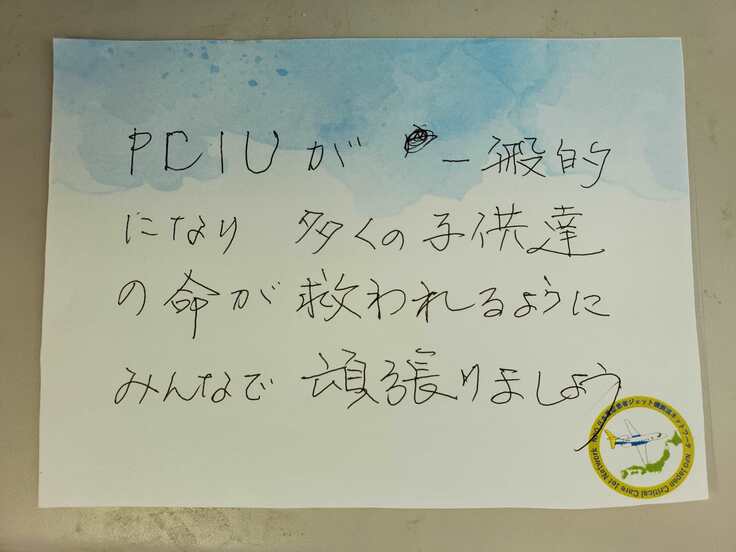 PCIUが 一般的
になり 多くの子供達
の命が救われるように
みんなで 頑張りましょう
NPO 日本重症患者ジェット機搬送ネットワーク
NPO Japan Critical Care Jet Network